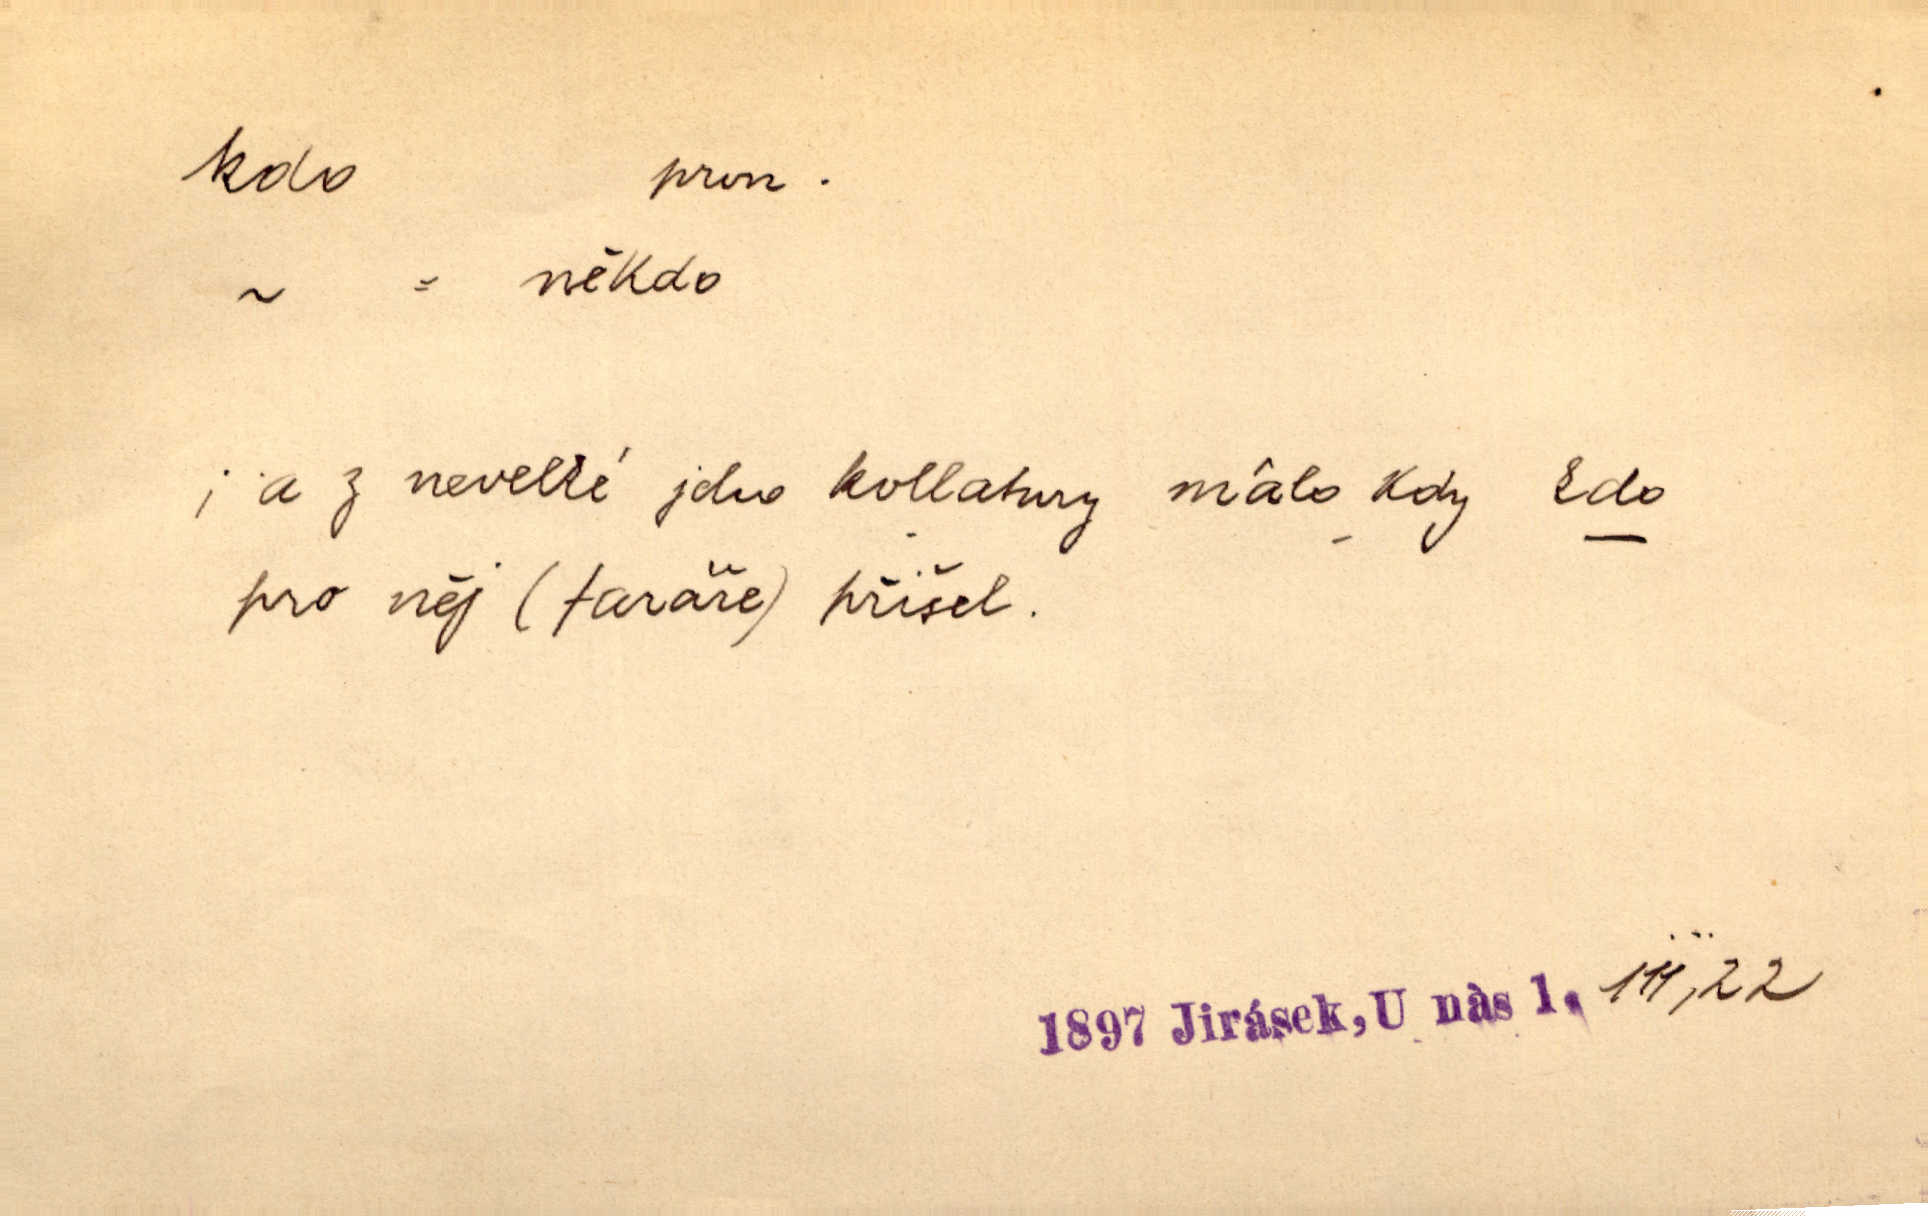 kdo pron.
~ = někdo
; a z nevelké jeho kollatury málo kdy kdo
pro něj (faráře) přišel.
1897 Jirásek, U nás 1. III, 22